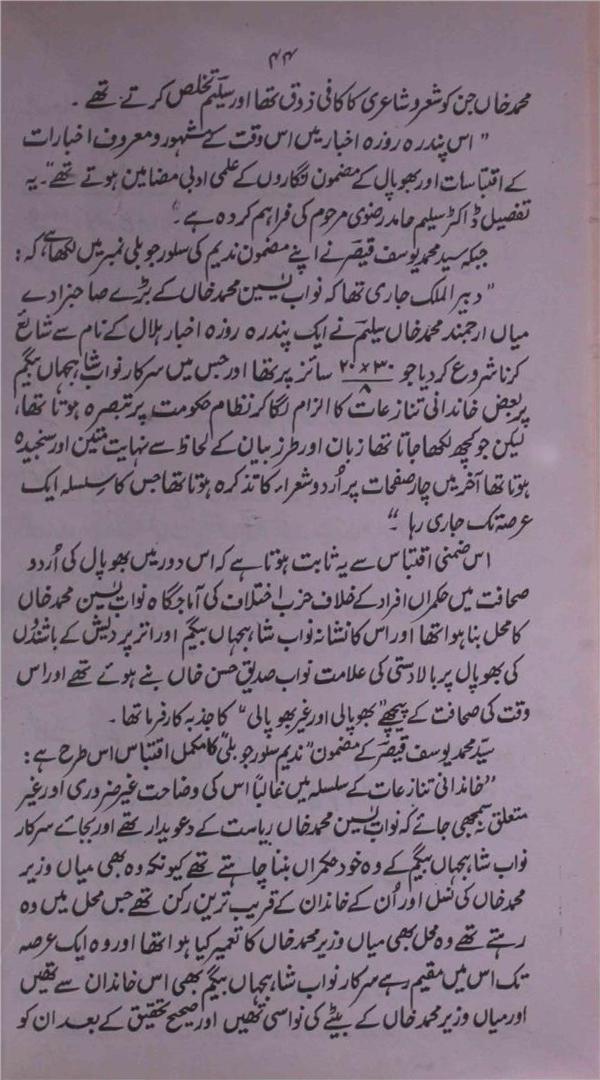 ۴۴
محمد خاں جن کو شعر و شاعری کا کافی ذوق تھا اور سلیم تخلص کرتے تھے ۔
” اس پندرہ روزہ اخبار میں اس وقت کے مشہور و معروف اخبارات
کے اقتباسات اور بھوپال کے مضمون نگاروں کے علمی ادبی مضامین ہوتے تھے ۔“ یہ
تفصیل ڈاکٹر سلیم حامد رضوی مرحوم کی فراہم کردہ ہے ۔
جبکہ سید محمد یوسف قیصر نے اپنے مضمون ندیم کی سلور جوبلی نمبر میں لکھا ہے کہ :
” دبیر الملک جاری تھا کہ نواب یٰسین محمد خاں کے بڑے صاحبزادے
میاں ارجمند محمد خاں سلیم نے ایک پندرہ روزہ اخبار ہلال کے نام سے شائع
کرنا شروع کر دیا جو ۲۰×۳۰/۸ سائز پر تھا اور جس میں سرکار نواب شاہجہاں بیگم
پر بعض خاندانی تنازعات کا الزام لگا کر نظام حکومت پر تبصرہ ہوتا تھا،
لیکن جو کچھ لکھا جاتا تھا زبان اور طرز بیان کے لحاظ سے نہایت متین اور سنجیدہ
ہوتا تھا آخر میں چار صفحات پر اُردو شعراء کا تذکرہ ہوتا تھا جس کا سلسلہ ایک
عرصہ تک جاری رہا ۔“
اس ضمنی اقتباس سے یہ ثابت ہوتا ہے کہ اس دور میں بھوپال کی اُردو
صحافت میں حکمراں افراد کے خلاف حزب اختلاف کی آماجگاہ نواب یٰسین محمد خاں
کا محل بنا ہوا تھا اور اس کا نشانہ نواب شاہجہاں بیگم اور اتر پردیش کے باشندوں
کی بھوپال پر بالادستی کی علامت نواب صدیق حسن خاں بنے ہوئے تھے اور اس
وقت کی صحافت کے پیچھے ”بھوپالی اور غیر بھوپالی“ کا جذبہ کارفرما تھا ۔
سیّد محمد یوسف قیصر کے مضمون ”ندیم سلور جوبلی“ کا مکمل اقتباس اس طرح ہے :
”خاندانی تنازعات کے سلسلہ میں غالباً اس کی وضاحت غیر ضروری اور غیر
متعلق نہ سمجھی جائے کہ نواب یٰسین محمد خاں ریاست کے دعویدار تھے اور بجائے سرکار
نواب شاہجہاں بیگم کے وہ خود حکمراں بننا چاہتے تھے کیونکہ وہ بھی میاں وزیر
محمد خاں کی نسل اور اُن کے خاندان کے قریب ترین رکن تھے جس محل میں وہ
رہتے تھے وہ محل بھی میاں وزیر محمد خاں کا تعمیر کیا ہوا تھا اور وہ ایک عرصہ
تک اس میں مقیم رہے سرکار نواب شاہجہاں بیگم بھی اس خاندان سے تھیں
اور میاں وزیر محمد خاں کے بیٹے کی نواسی تھیں اور صحیح تحقیق کے بعد ان کو